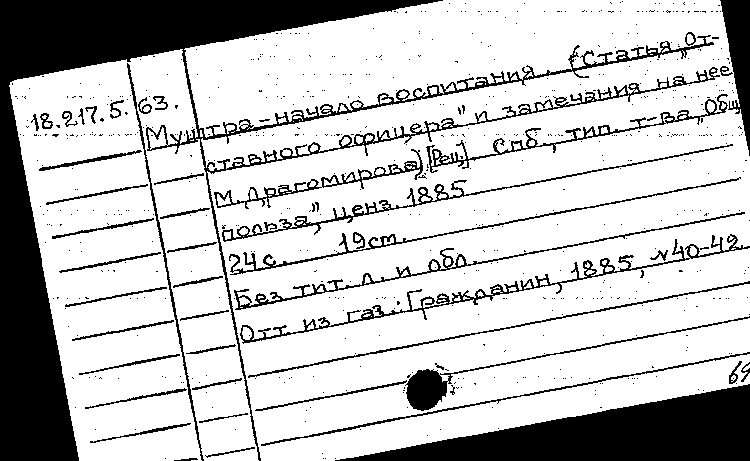 18.217.5.63.
Муштра-начало воспитания. (Статья „От-
ставного офицера" и замечания на нее
М. Драгомирова) [Рец.]. Спб., тип. т-ва „Общ.
польза", ценз. 1885
24 с. 19 см.
Без тит. л. и обл.
Отт. из газ.: Гражданин, 1885, №40-42.
69